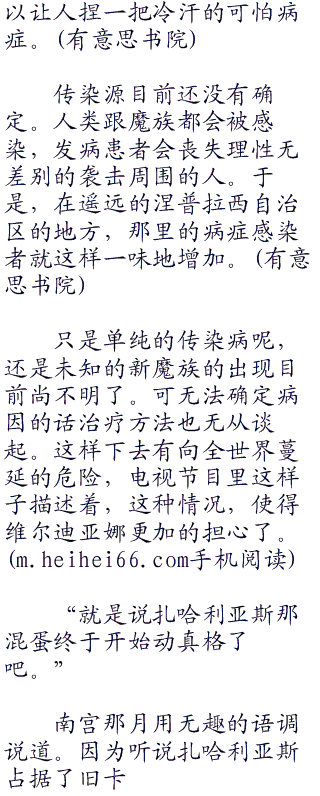 以让人捏一把冷汗的可怕病
症。(有意思书院)
传染源目前还没有确
定。人类跟魔族都会被感
染，发病患者会丧失理性无
差别的袭击周围的人。于
是，在遥远的涅普拉西自治
区的地方，那里的病症感染
者就这样一味地增加。(有意
思书院)
只是单纯的传染病呢，
还是未知的新魔族的出现目
前尚不明了。可无法确定病
因的话治疗方法也无从谈
起。这样下去有向全世界蔓
延的危险，电视节目里这样
子描述着，这种情况，使得
维尔迪亚娜更加的担心了。
(m.heihei66.com手机阅读)
“就是说扎哈利亚斯那
混蛋终于开始动真格了
吧。”
南宫那月用无趣的语调
说道。因为听说扎哈利亚斯
占据了旧卡